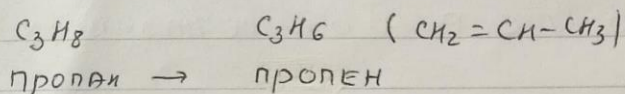 C₃H₈ C₃H6 (CH₂=CH-CH₃)
ПРОПАН → ПРОПЕН